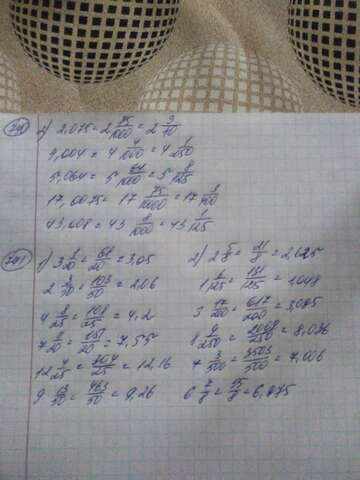 740 2) 2,075 = 2 75/1000 = 2 3/40
4,004 = 4 4/1000 = 4 1/250
5,064 = 5 64/1000 = 5 8/125
17,0075 = 17 75/10000 = 17 3/400
43,008 = 43 8/1000 = 43 1/125
741 1) 3 1/20 = 61/20 = 3,05
2 3/50 = 103/50 = 2,06
4 8/25 = 108/25 = 4,2
7 11/20 = 151/20 = 7,55
12 4/25 = 304/25 = 12,16
9 13/50 = 463/50 = 9,26
2) 2 5/8 = 21/8 = 2,625
1 6/125 = 131/125 = 1,048
3 17/200 = 617/200 = 3,085
8 9/250 = 2009/250 = 8,036
7 3/500 = 3503/500 = 7,006
6 7/8 = 55/8 = 6,875